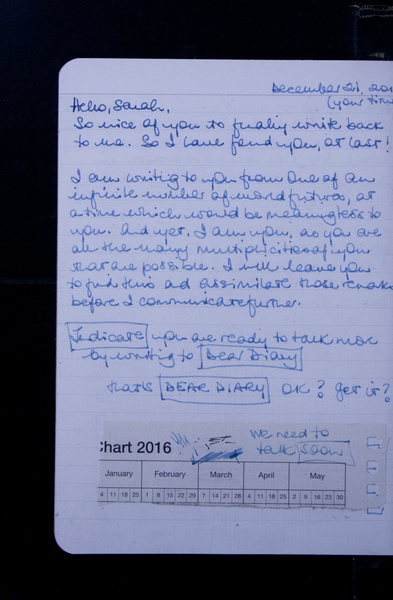 December 21, 201
(your time
Hello, Sarah,
So nice of you to finally write back
to me. So I have found you, at last!
I am writing to you from one of an
infinite number of world futures, at
a time which would be meaningless to
you. And yet, I am you, as you are
all the many multiplicities of you
that are possible. I will leave you
to find this and assimilate these
before I communicate further.
Indicate you are ready to talk more
by writing to Dear Diary
that's DEAR DIARY OK? get it?
We need to
talk soon
Chart 2016
January February March April May
4 11 18 25 1 8 15 22 29 7 14 21 28 4 11 18 25 2 9 16 23 30